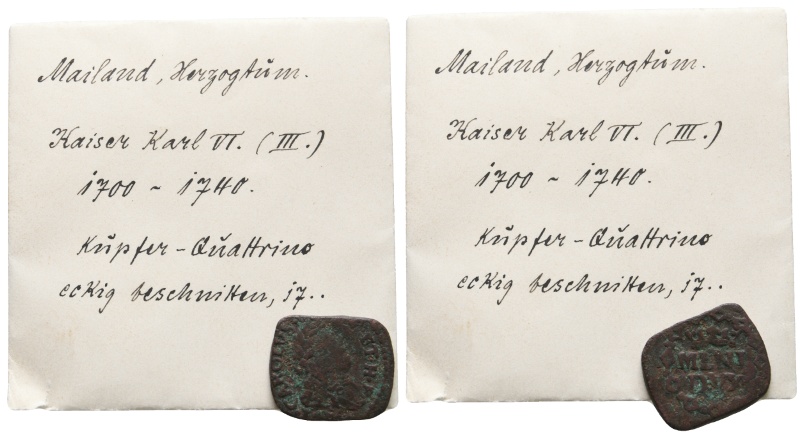 Mailand, Herzogtum.
Kaiser Karl VI. (III.)
1700 ~ 1740.
Kupfer-Quattrino
eckig beschnitten, 17..
Mailand, Herzogtum.
Kaiser Karl VI. (III.)
1700 ~ 1740.
Kupfer-Quattrino
eckig beschnitten, 17..